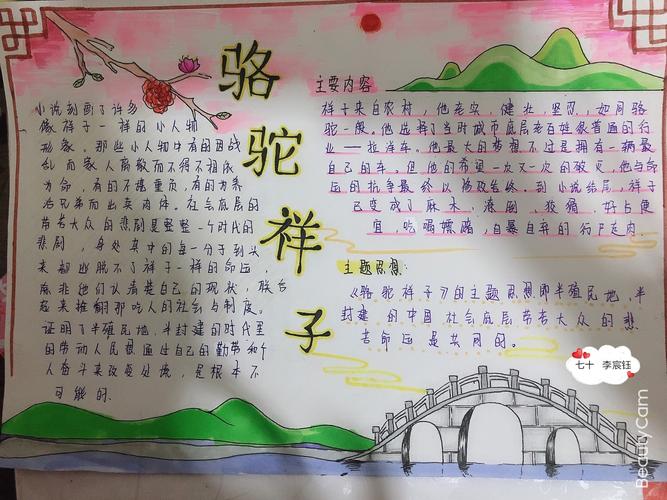 骆驼祥子
小说刻画了许多
像祥子一样的小人物
形象。那些小人物中有的因战
乱而家人离散而不得不相依
为命,有的不堪重负,有的为养
活兄弟而出卖肉体。社会底层的
劳苦大众的悲剧是整整一个时代的
悲剧,身处其中的每一分子到头
来都逃脱不了祥子一样的命运,
除非他们认清楚自己的现状,联合
起来推翻那吃人的社会与制度。
证明了半殖民地、半封建的时代里
的劳动人民想通过自己的勤劳和个
人奋斗来改变处境,是根本不
可能的、
主要内容
祥子来自农村,他老实、健壮、坚忍,如同骆
驼一般。他选择了当时城市底层老百姓很普通的行
业——拉洋车。他最大的梦想不过是拥有一辆最
自己的车。但他的希望一次又一次的破灭,他与命
运的抗争最终以惨败告终。到小说结尾,祥子
已变成了麻木、潦倒、狡猾、好占便
宜、吃喝嫖赌,自暴自弃的行尸走肉
主题思想:
《骆驼祥子》的主题思想即半殖民地,半
封建的中国社会底层劳苦大众的悲
苦命运是共同的。
七十 李宸钰
BeautyCam